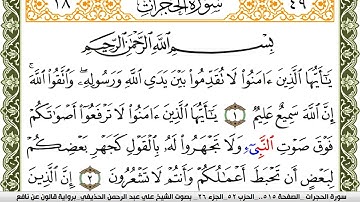 ١٨ سورة الحجرات ٤٩
بِسْمِ اللَّهِ الرَّحْمَٰنِ الرَّحِيمِ
يَٰأَيُّهَا الَّذِينَ ءَامَنُوا لَا تُقَدِّمُوا بَيْنَ يَدَيِ اللَّهِ وَرَسُولِهِ وَاتَّقُوا اللَّهَ
إِنَّ اللَّهَ سَمِيعٌ عَلِيمٌ ١ يَٰأَيُّهَا الَّذِينَ ءَامَنُوا لَا تَرْفَعُوا أَصْوَٰتَكُمْ
فَوْقَ صَوْتِ النَّبِيءِ وَلَا تَجْهَرُوا لَهُ بِالْقَوْلِ كَجَهْرِ بَعْضِكُمْ
لِبَعْضٍ أَن تَحْبَطَ أَعْمَٰلُكُمْ وَأَنتُمْ لَا تَشْعُرُونَ ٢ إِنَّ الَّذِينَ
سورة الحجرات ..الصفحة ٥١٥.. الحزب ٥٢.. الجزء ٢٦.. بصوت الشيخ علي عبد الرحمن الحذيفي ..برواية قالون عن نافع